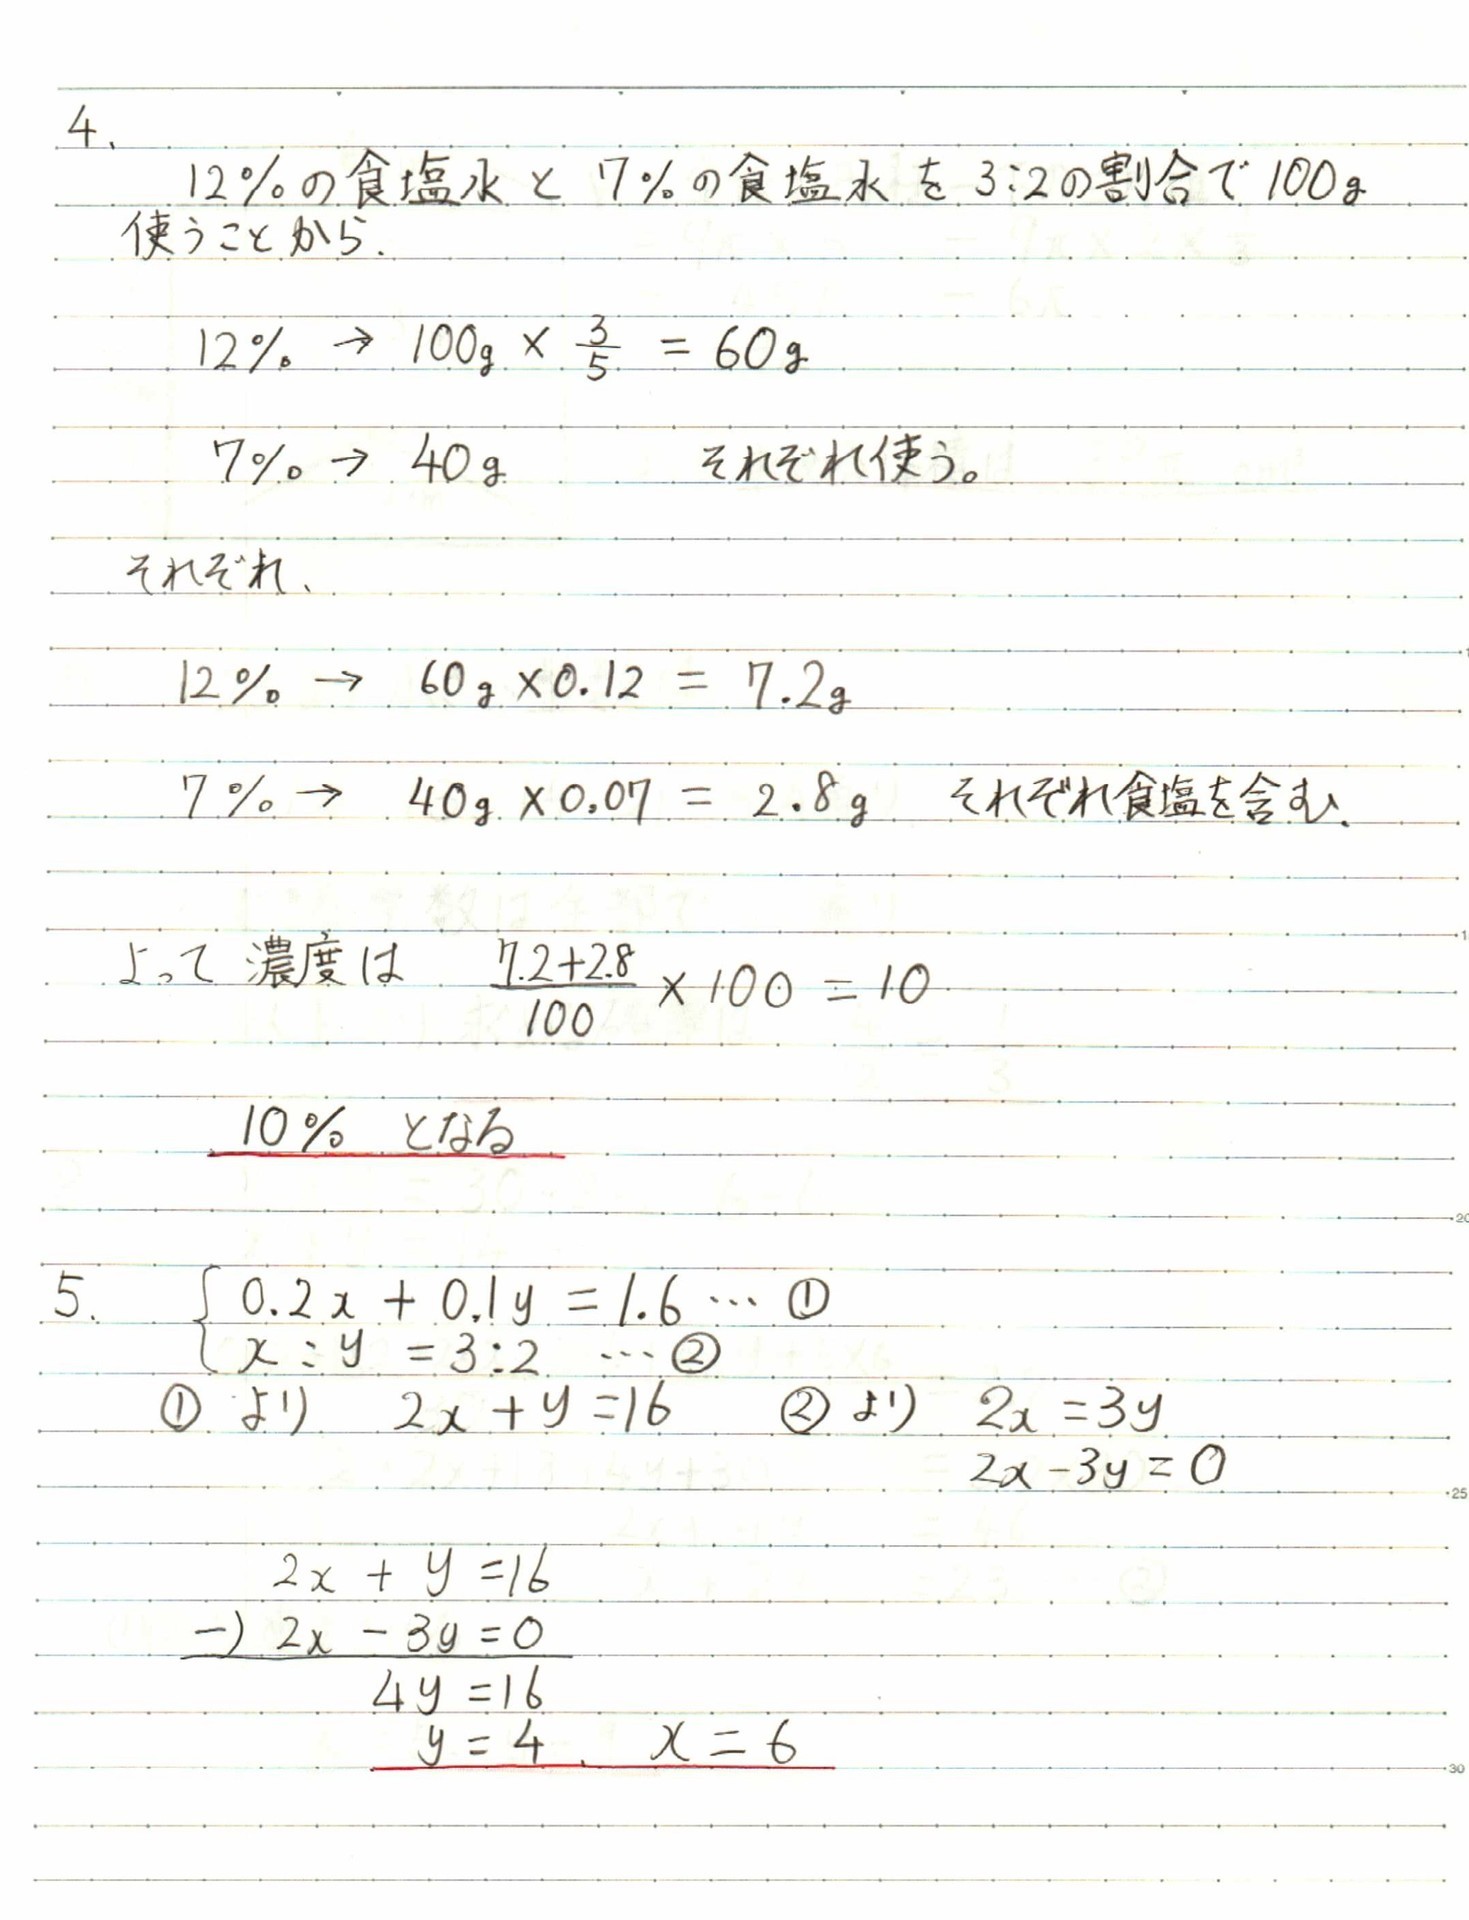 4.
12%の食塩水と7%の食塩水を3:2の割合で100g
使うことから.
12% → 100g × 3/5 = 60g
7% → 40g それぞれ使う。
それぞれ、
12% → 60g×0.12 = 7.2g
7% → 40g×0.07 = 2.8g それぞれ食塩を含む、
よって 濃度は (7.2+2.8)/100 ×100 = 10
10% となる
5. { 0.2x + 0.1y = 1.6 … ①
x : y = 3:2 … ②
① より 2x + y = 16 ② より 2x = 3y
2x - 3y = 0
2x + y = 16
-) 2x - 3y = 0
4y = 16
y = 4 、 x = 6
20
25
30